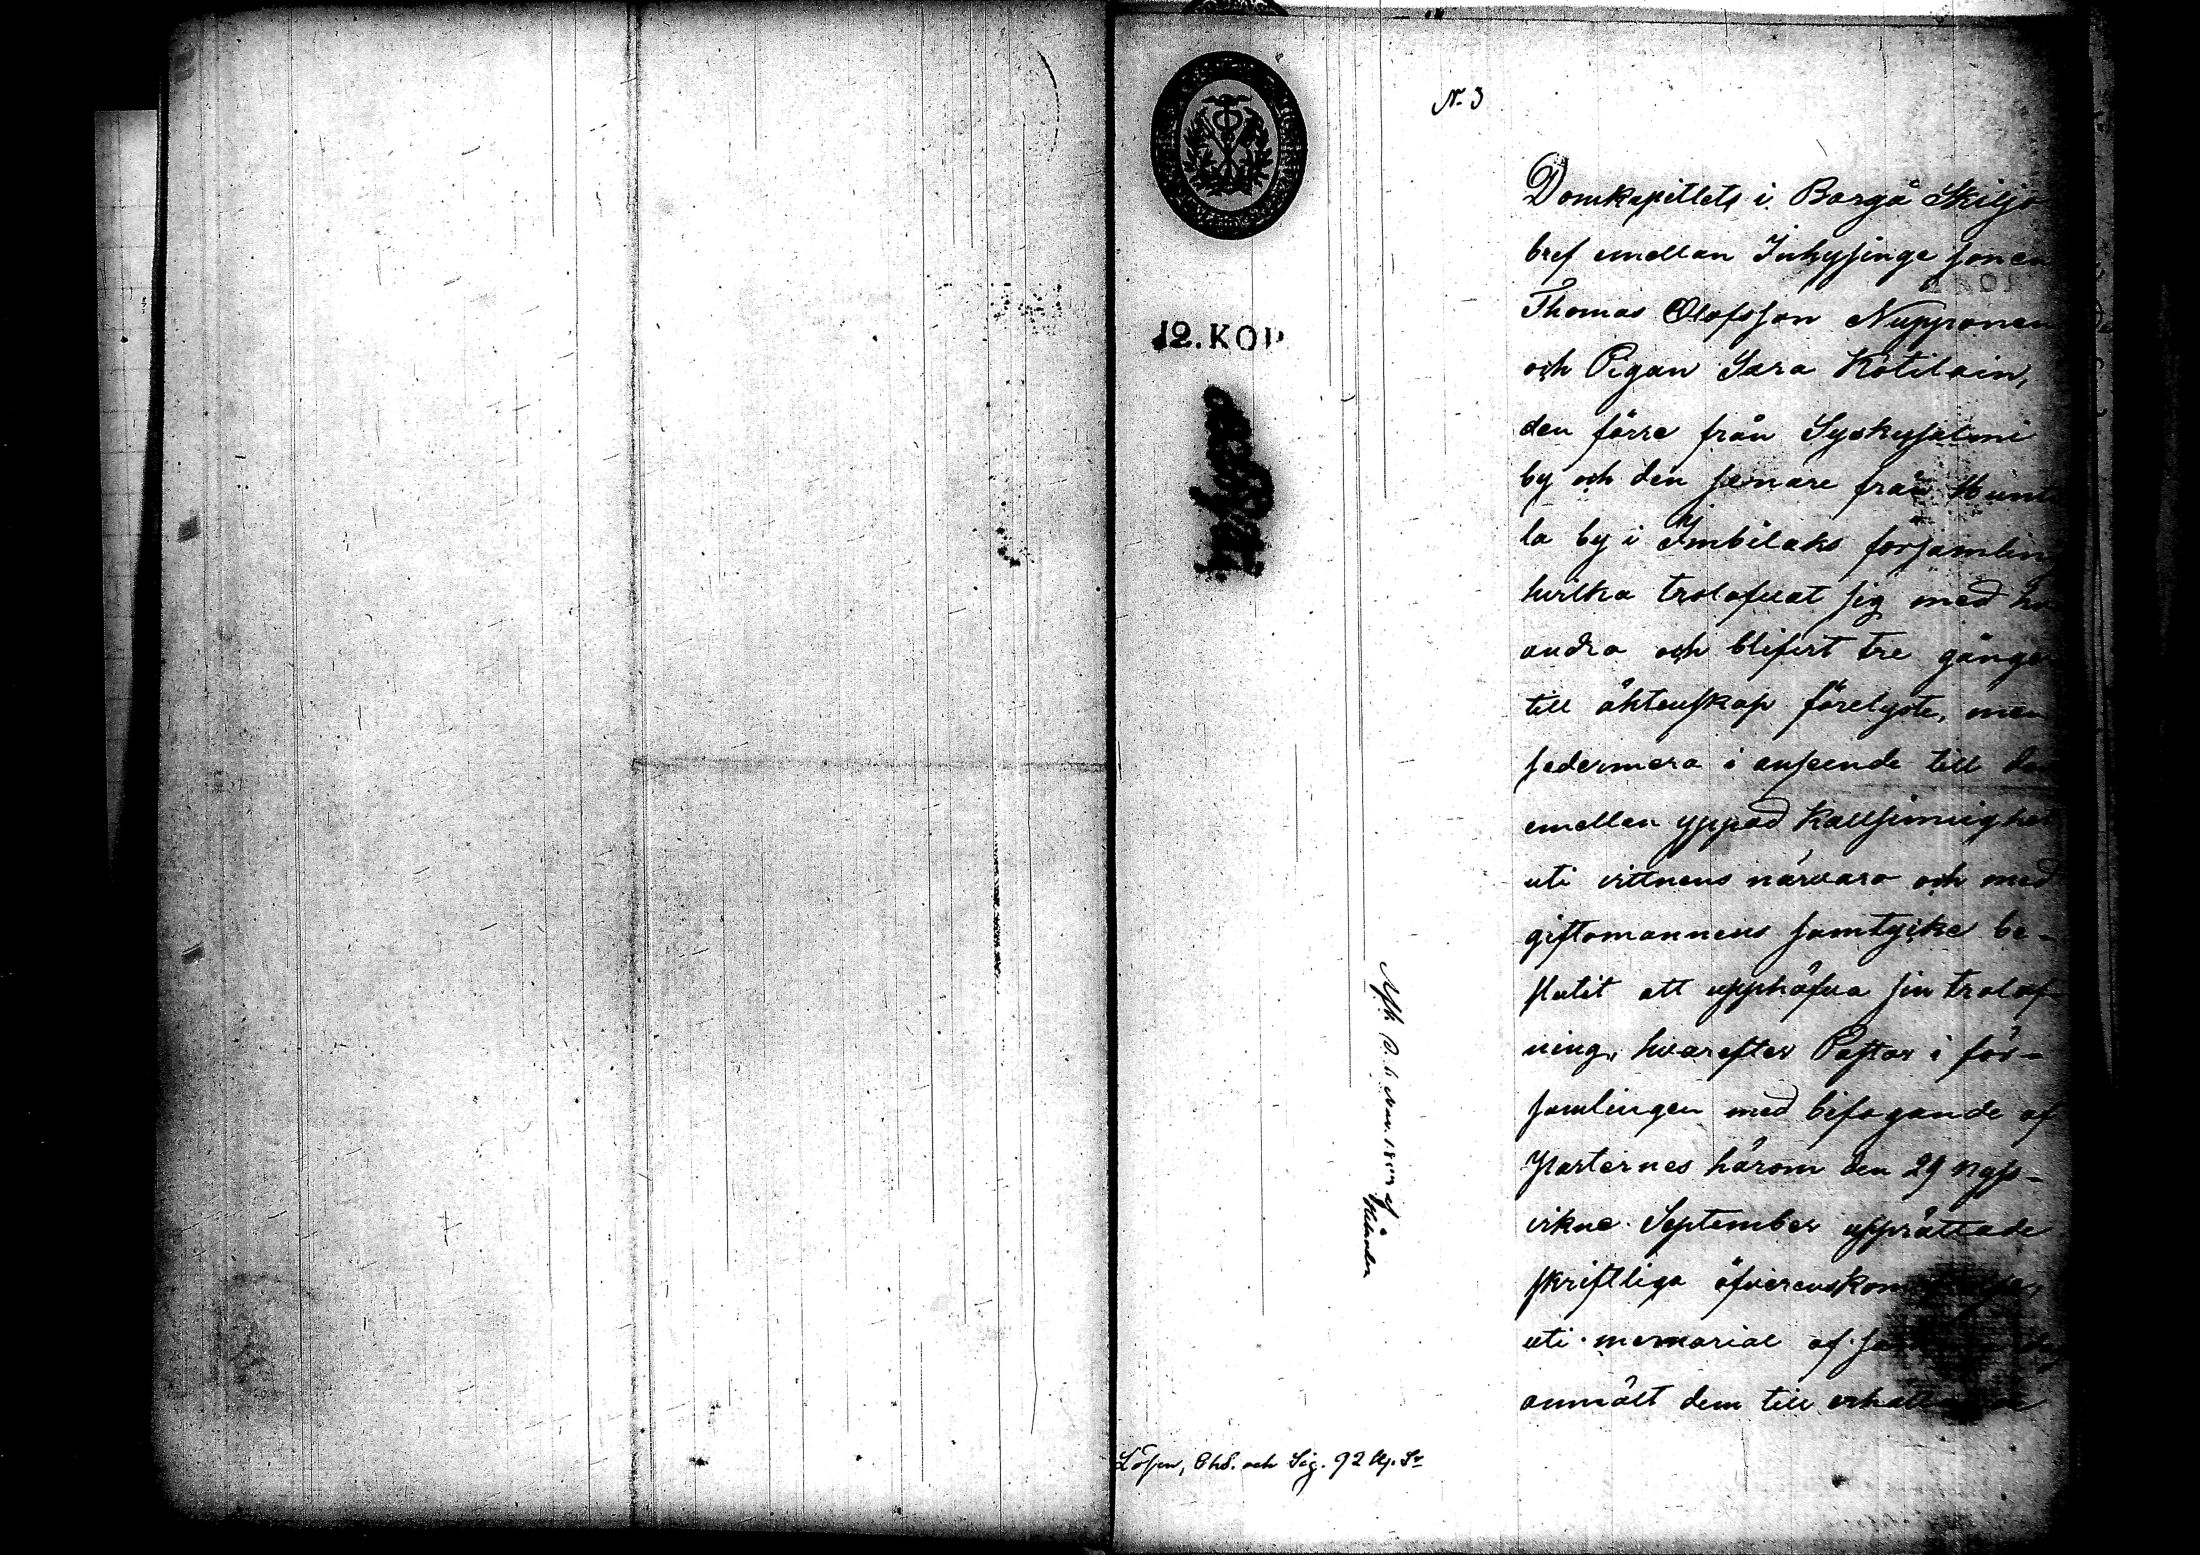 N. 3
12. KOP
Domkapitlets i Borgå Skiljo
bref emellan Inhysinge sonen
Thomas Olofsson Nuppонен
och Pigan Sara Kotilain,
den förre från Syskyjalmi
by och den senare från Hunt
la by i Imbilaks församling
hvilka trolofvat sig med hv
andra och blifvit tre gånger
till äktenskap förelyste, men
sedermera i anseende till den
emellan yppad kallsinnighet
uti vittnens närvaro och med
giftomannens samtycke be-
slutit att upphäfva sin trolof-
ning, hvarefter Pastor i för-
samlingen med bifogande af
Parternes härom den 29 nyss-
vikne September upprättade
skriftliga
uti memorial af
anmält dem till
Lösen, Chs. och Sig. 92 kp. Sr